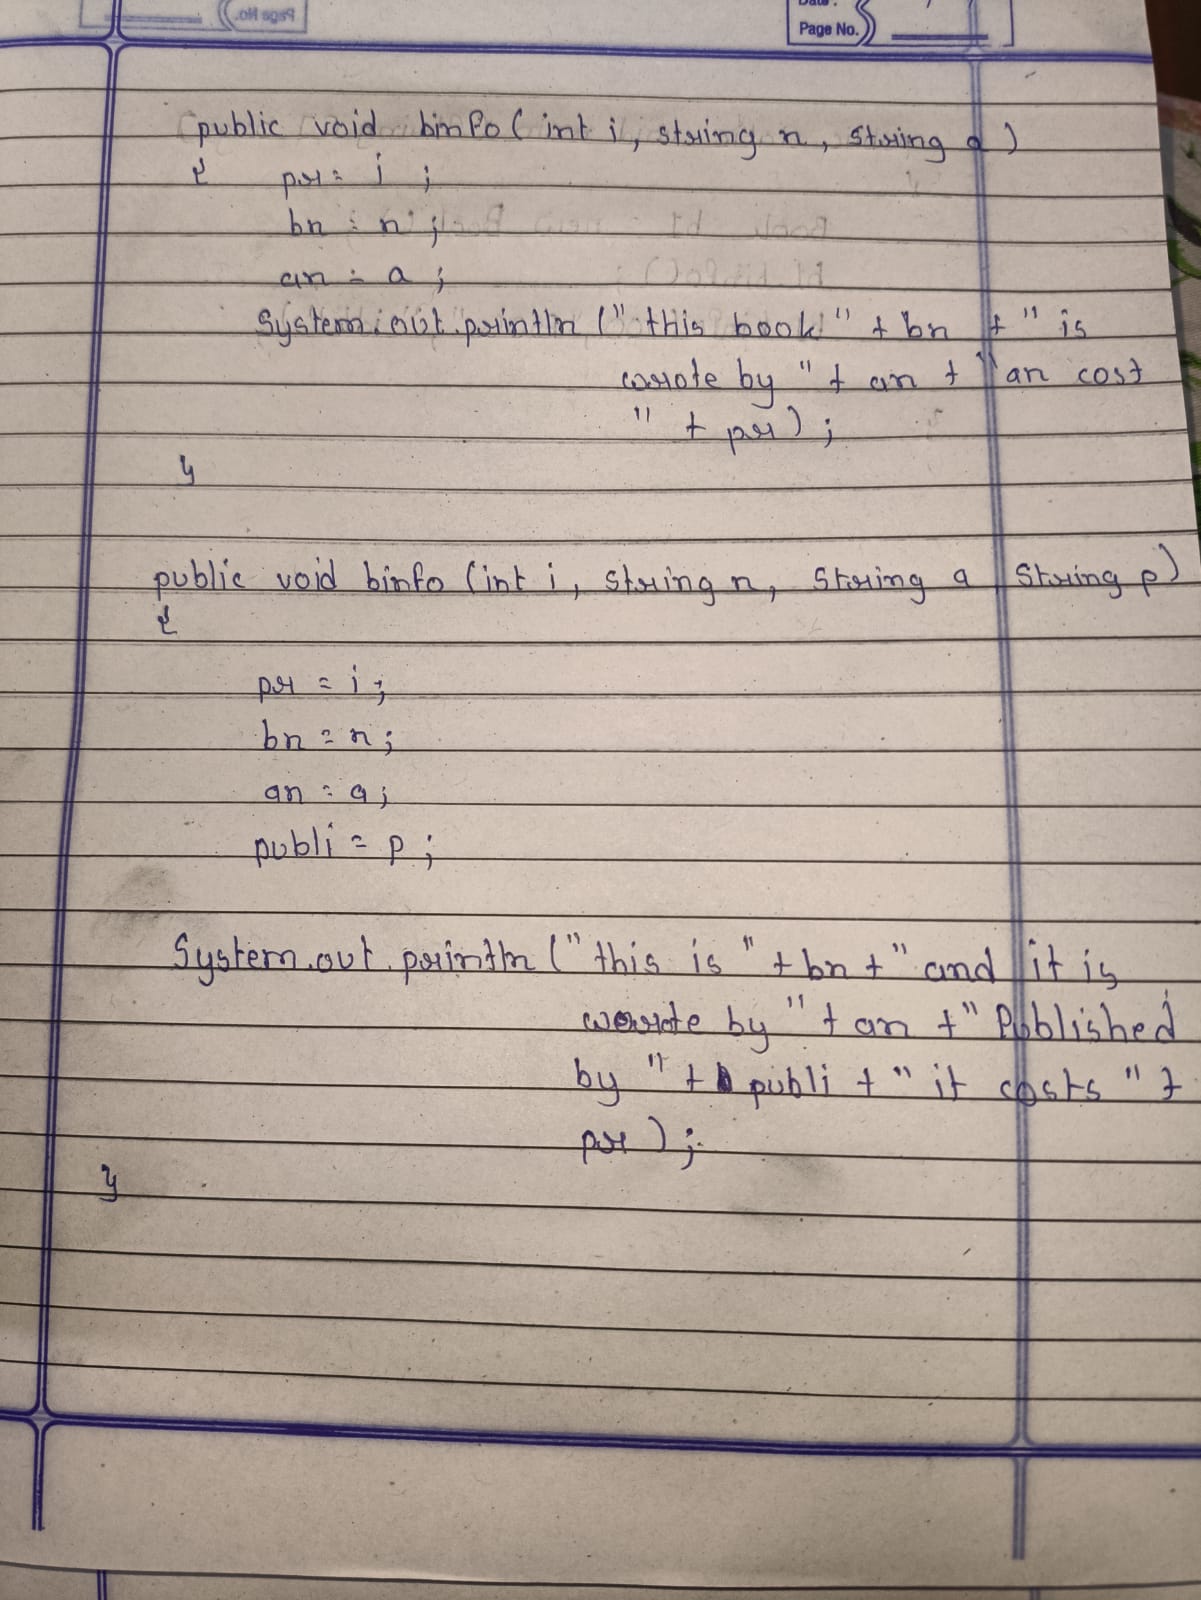 Page No.
Date :
Page No.
public void binfo ( int i, string n, string a )
{ pr = i ;
bn = n ;
an = a ;
System.out.println ("this book" + bn + " is
wrote by " + an + " an cost
" + pr ) ;
}
public void binfo (int i, string n, String a, String p)
{
pr = i ;
bn = n ;
an = a ;
publi = p ;
System.out.println ("this is " + bn + " and it is
wrote by " + an + " Published
by " + publi + " it costs " +
pr ) ;
}